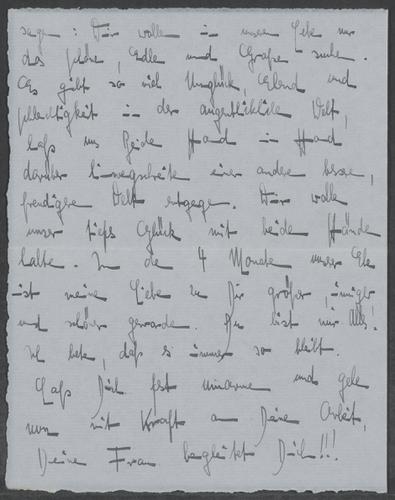 sagen: Wir wollen in unserm Leben nur
das Schöne, Edle und Große suchen.
Es gibt so viel Unglück, Elend und
Schlechtigkeit in der augenblicklichen Welt,
laß uns Beide Hand in Hand
darüber hinwegschreiten einer anderen besseren,
freudigeren Welt entgegen. Wir wollen
unser tiefes Glück mit beiden Händen
halten. In den 4 Monaten unserer Ehe
ist meine Liebe zu Dir größer, inniger
und schöner geworden. Du bist mir Alles!
Ich bete, daß es immer so bleibt.
Laß Dich fest umarmen und gehe
nun mit Kraft an Deine Arbeit,
Deine Frau begleitet Dich!!!